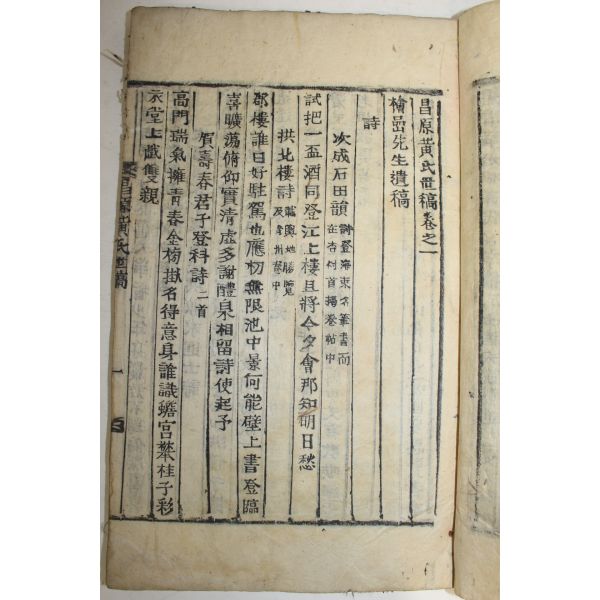 昌原黃氏世稿卷之一
檜嵒先生遺稿
詩
次成石田韻 詩登海東名筆書而在杏村首揭卷帖中
試把一盃酒同登江上樓且將今夕會那知明日愁
拱北樓詩 載輿地勝覽及韋州卷中
郡樓誰曰好駐駕也應忉無限池中景何能壁上書登臨
喜曠蕩俯仰實清虛多謝醴泉相留詩使起予
賀壽春君子登科詩二首
高門瑞氣擁青春金榜掛名得意身誰識蟾宮攀桂子彩
衣堂上戱雙親
昌原黃氏世稿
一